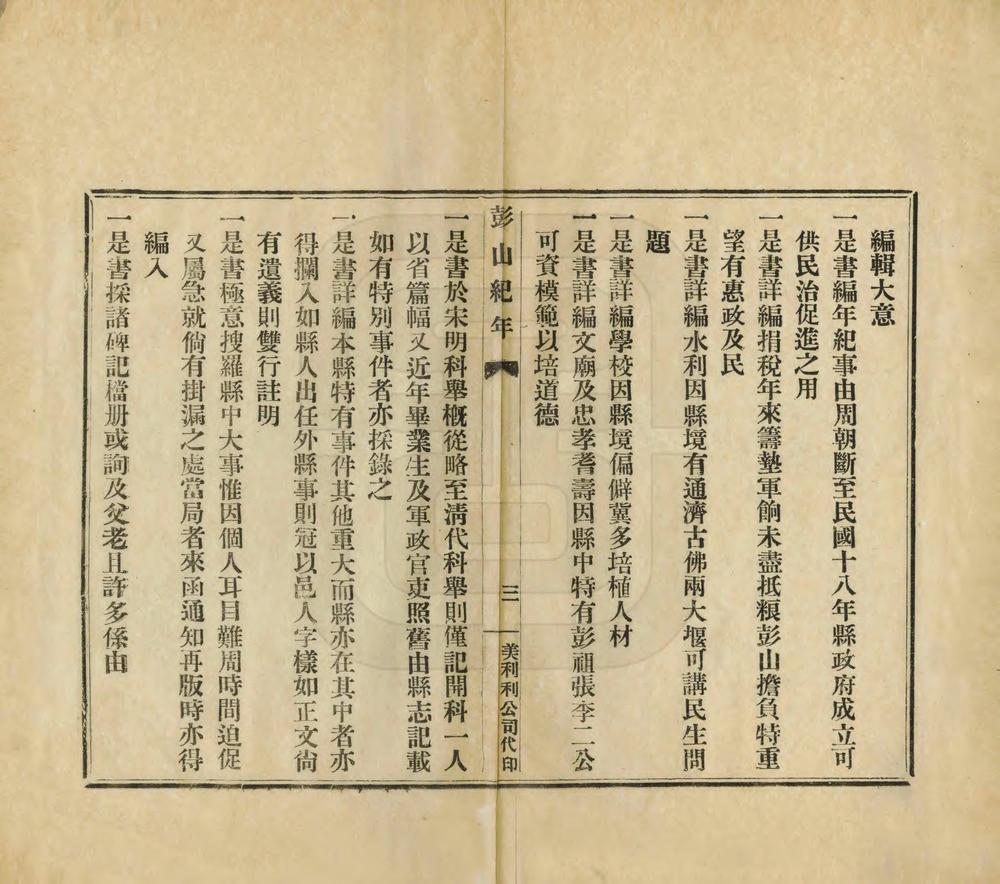 編輯大意
一是書編年紀事由周朝斷至民國十八年縣政府成立可
供民治促進之用
一是書詳編捐稅年來籌墊軍餉未盡抵粮彭山擔負特重
望有惠政及民
一是書詳編水利因縣境有通濟古佛兩大堰可講民生問
題
一是書詳編學校因縣境偏僻冀多培植人材
一是書詳編文廟及忠孝耆壽因縣中特有彭祖張李二公
可資模範以培道德
彭山紀年
三
美利利公司代印
一是書於宋明科舉槪從略至淸代科舉則僅記開科一人
以省篇幅又近年畢業生及軍政官吏照舊由縣志記載
如有特別事件者亦採錄之
一是書詳編本縣特有事件其他重大而縣亦在其中者亦
得攔入如縣人出任外縣事則冠以邑人字樣如正文尙
有遺義則雙行註明
一是書極意搜羅縣中大事惟因個人耳目難周時間迫促
又屬急就倘有掛漏之處當局者來函通知再版時亦得
編入
一是書採諸碑記檔册或詢及父老且許多係由